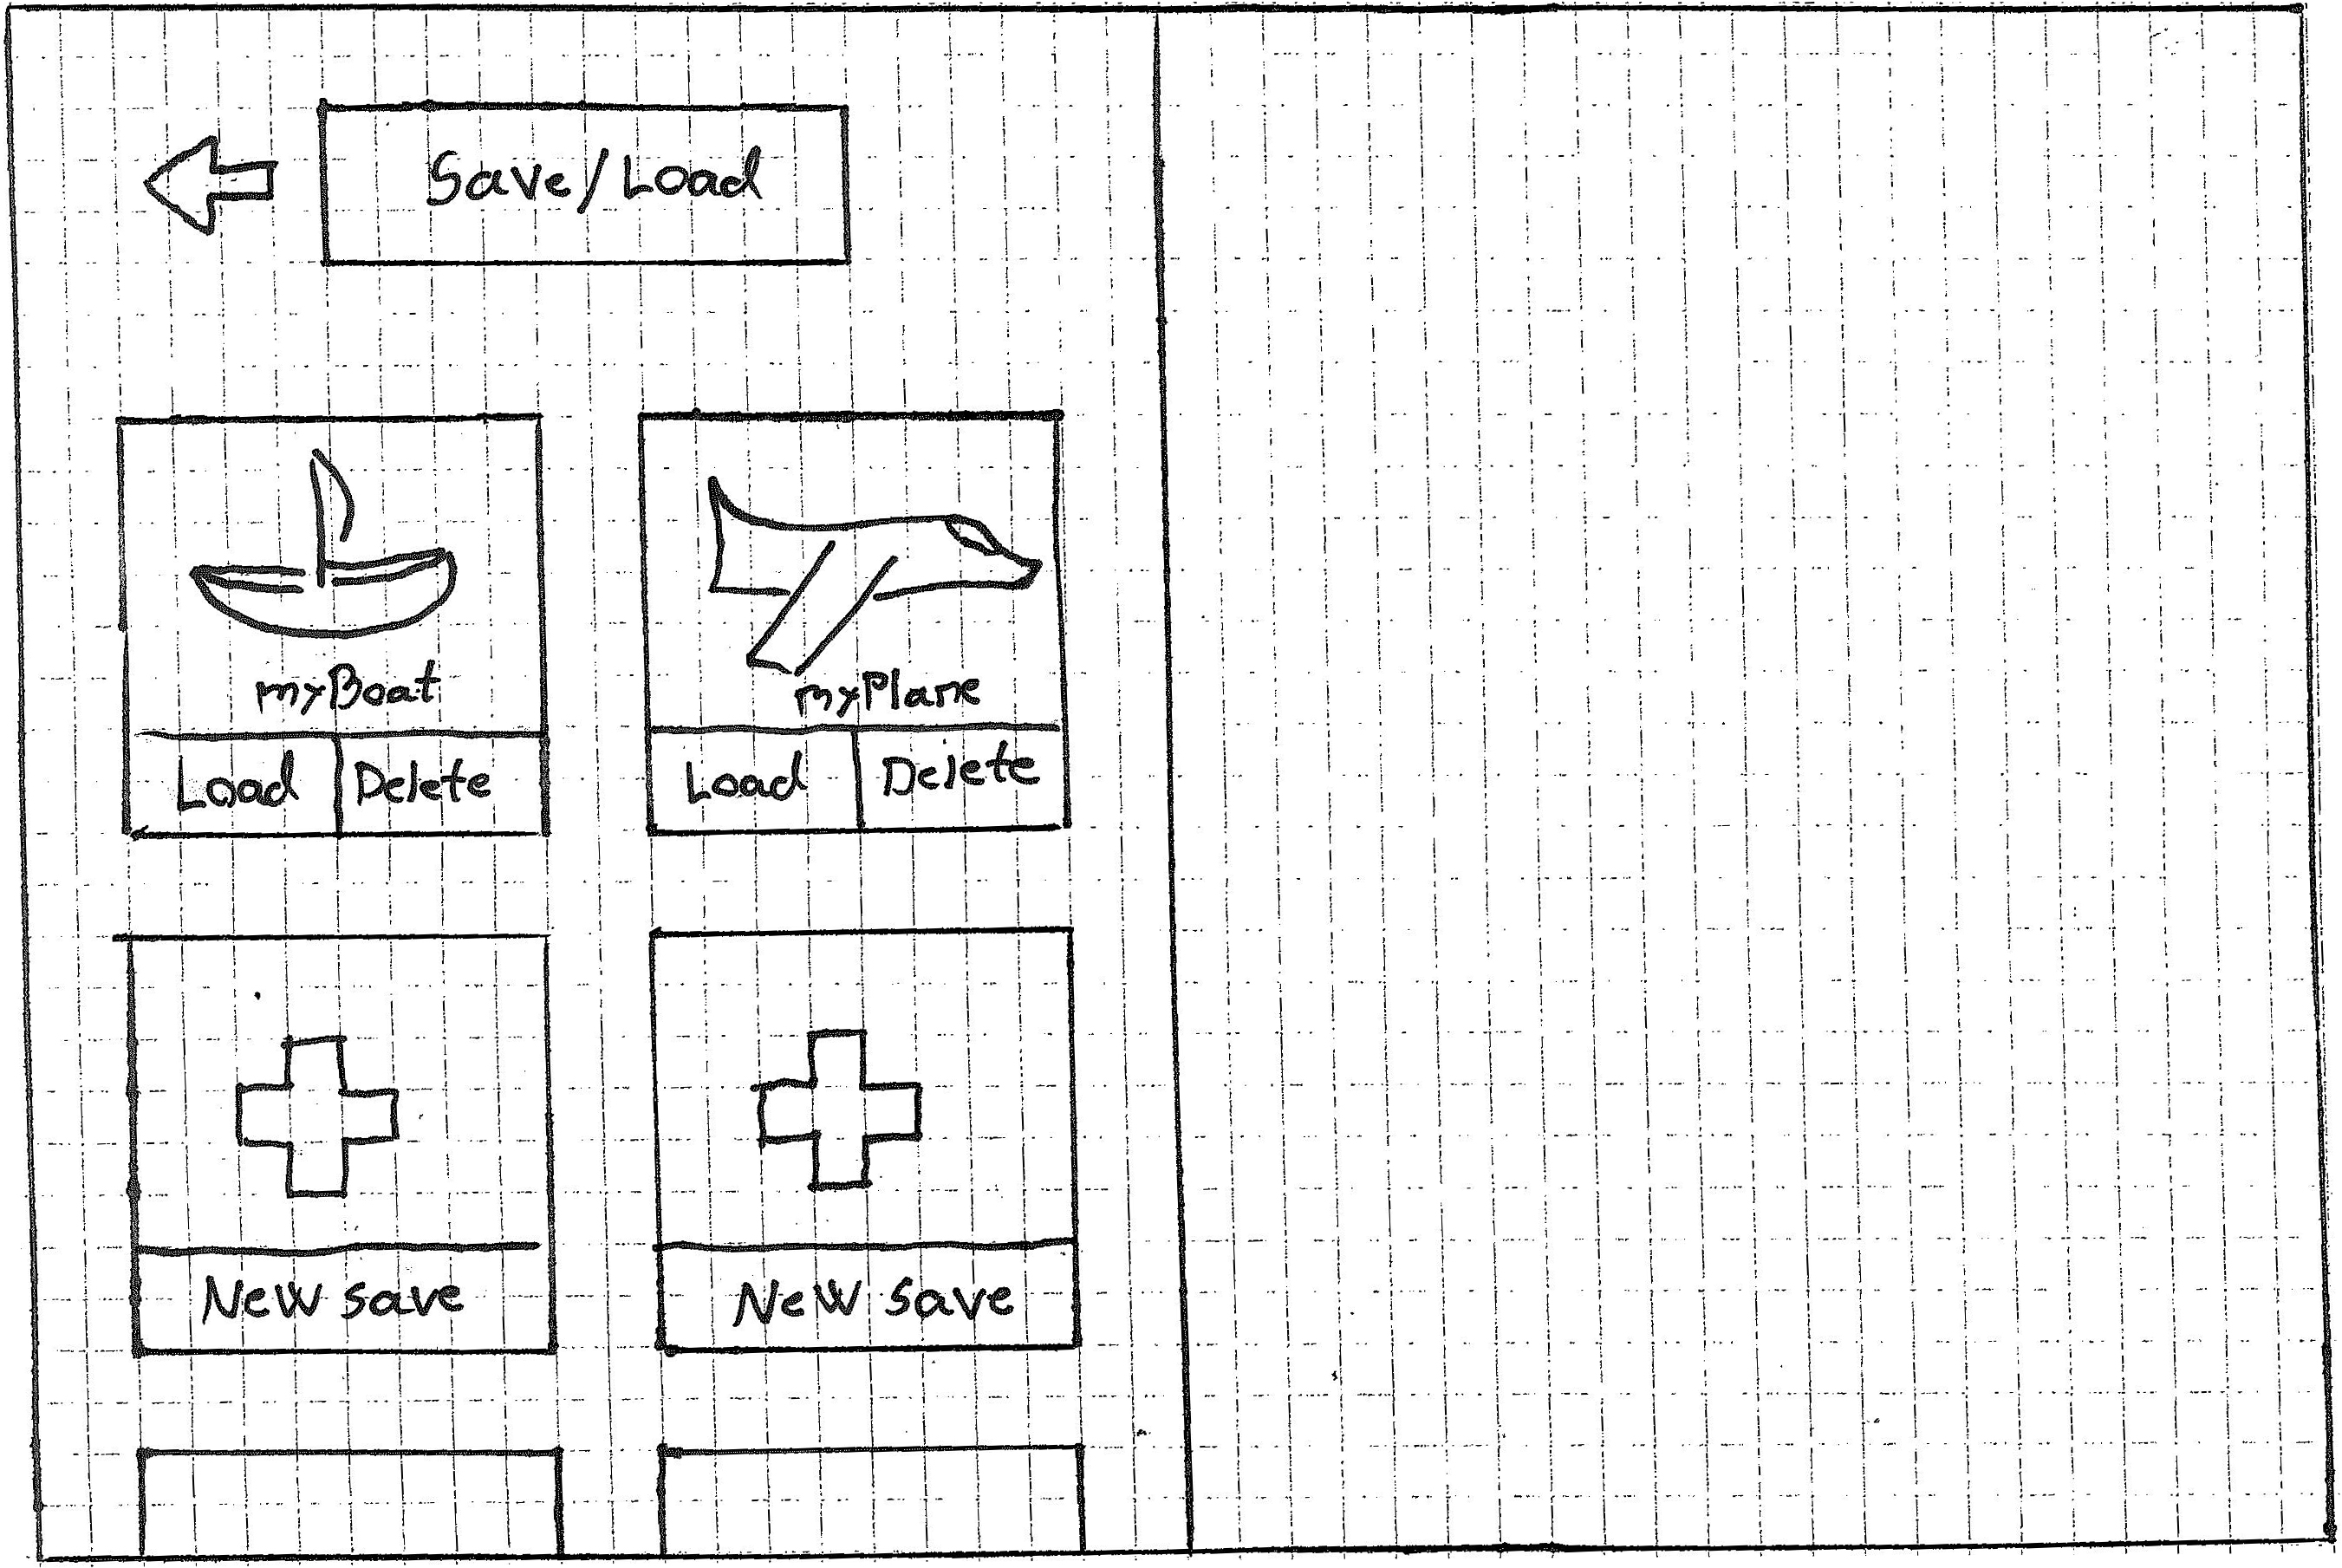 Save/Load
myBoat
Load Delete
myPlane
Load Delete
New save
New save